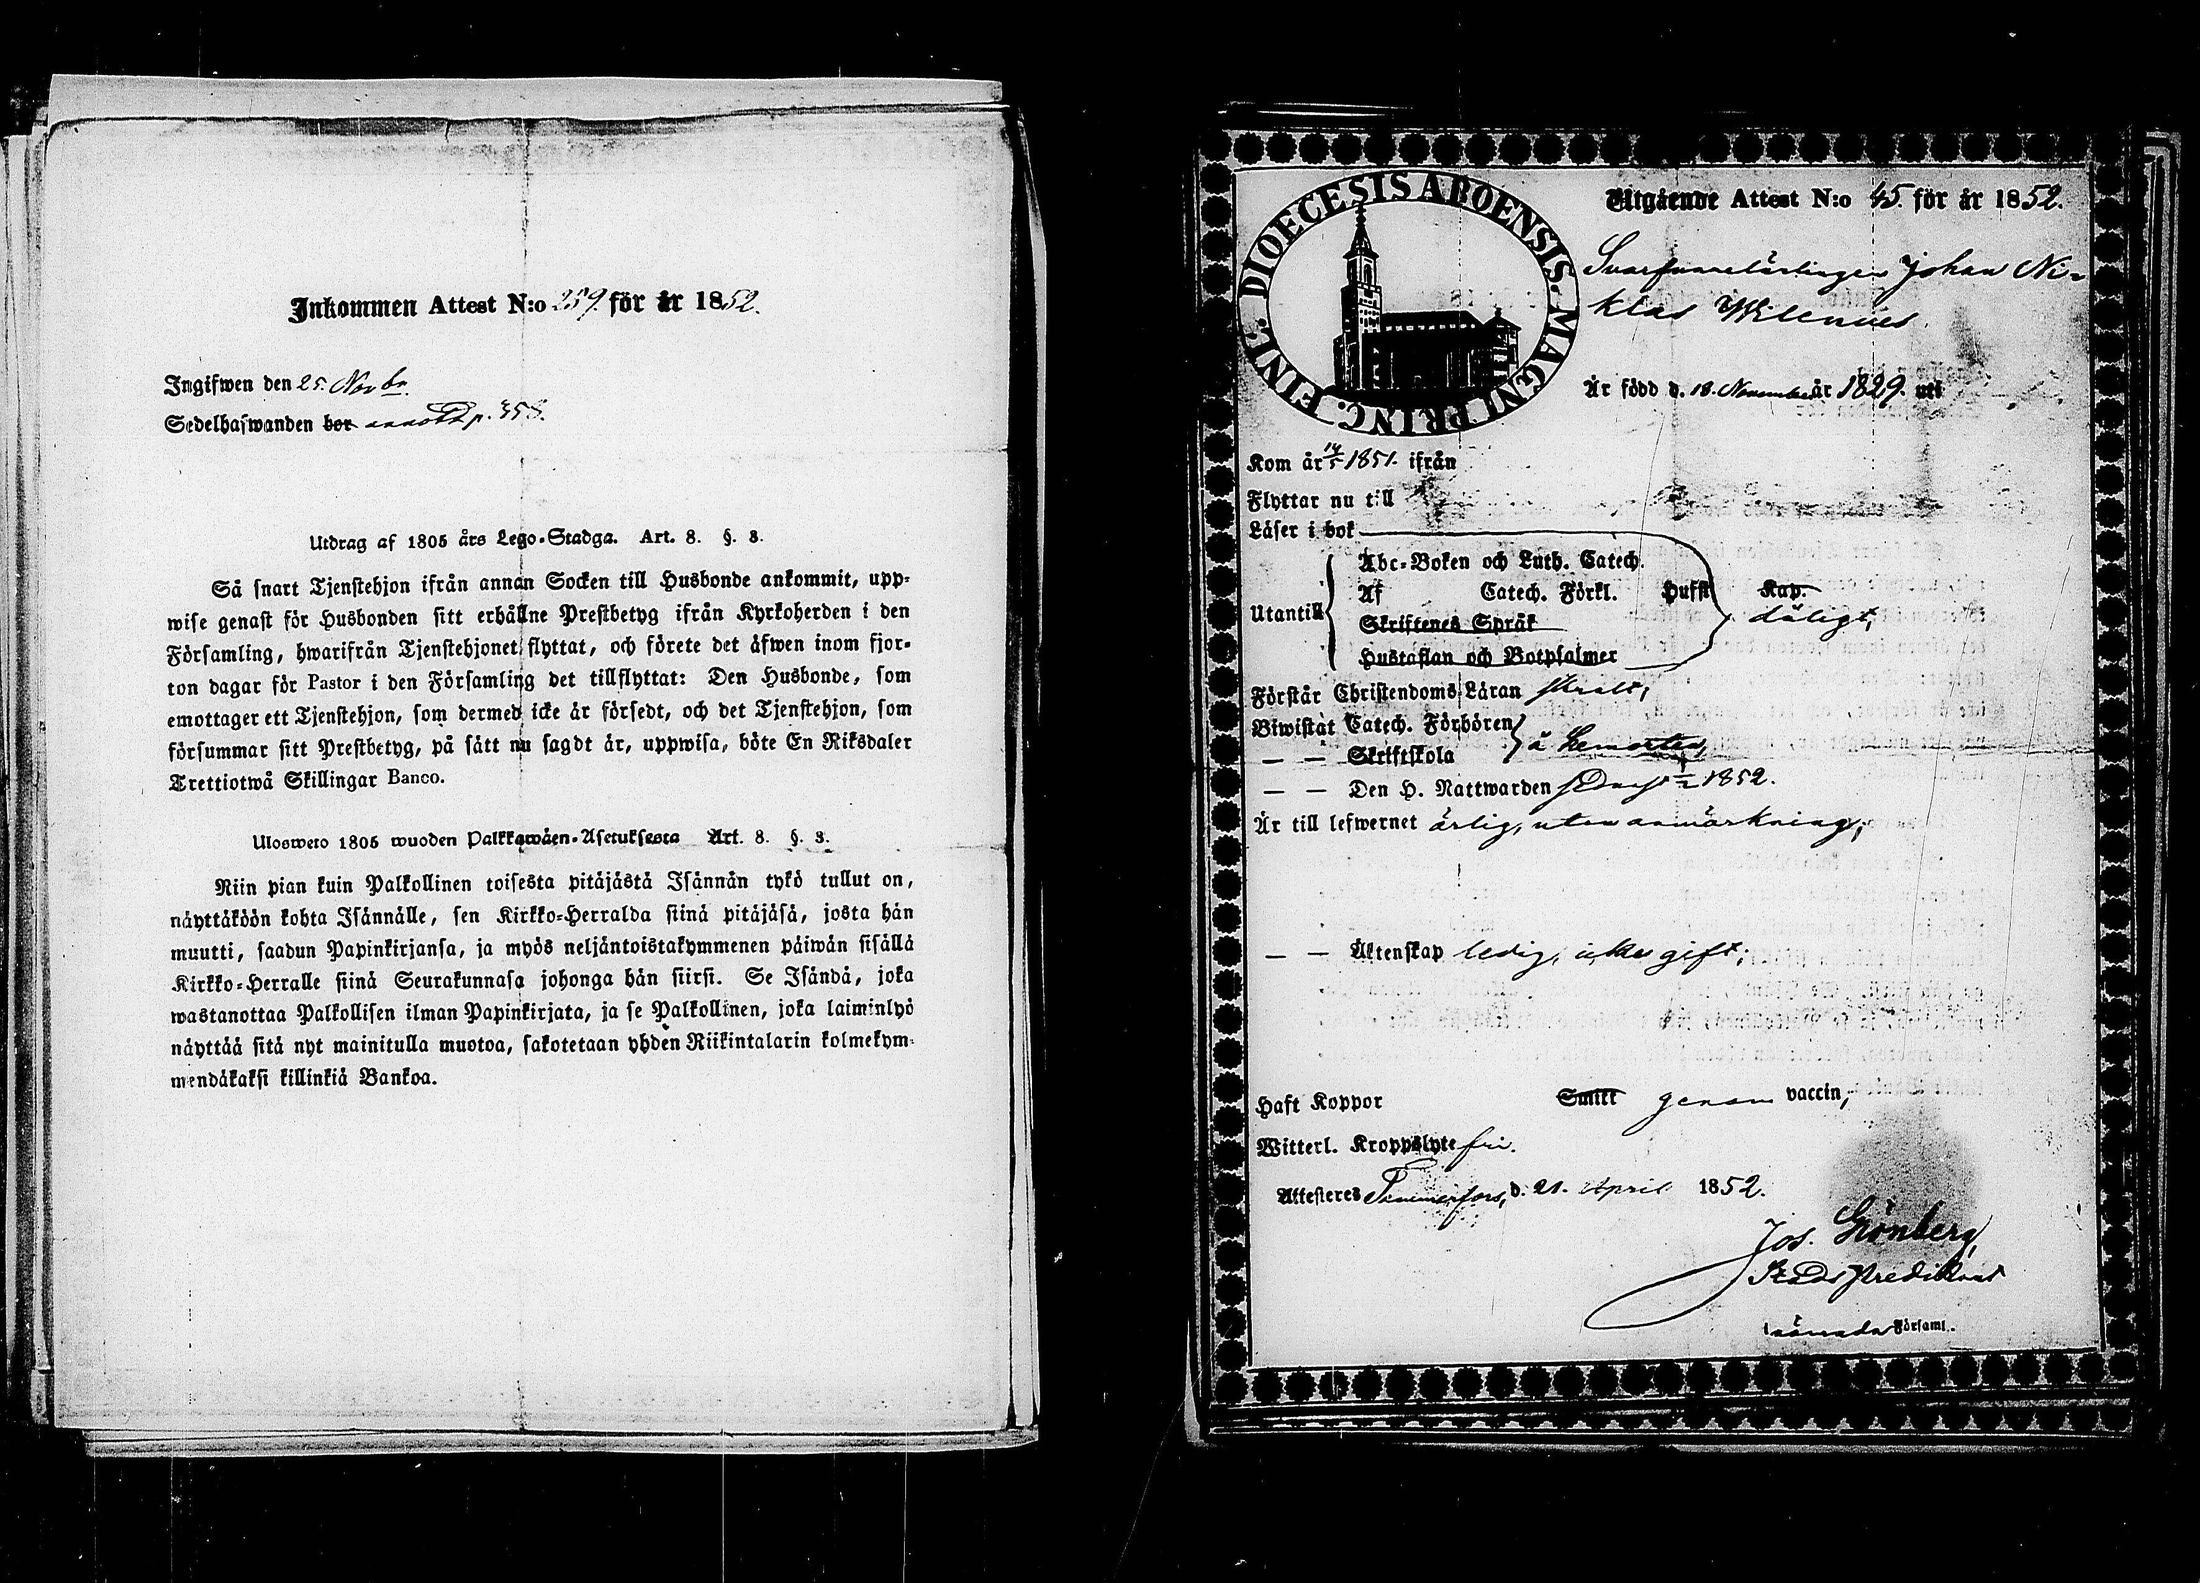 Inkommen Attest N:o 259. för år 1852.
Ingifwen den 25. Novbr
Sedelhafwanden bor p. 358.
Utdrag af 1805 års Lego-Stadga. Art. 8. §. 3.
Så snart Tjenstehjon ifrån annan Socken till Husbonde ankommit, upp-
wise genast för Husbonden sitt erhållne Prestbetyg ifrån Kyrkoherden i den
Församling, hwarifrån Tjenstehjonet flyttat, och förete det äfwen inom fjor-
ton dagar för Pastor i den Församling det tillflyttat: Den Husbonde, som
emottager ett Tjenstehjon, som dermed icke är försedt, och det Tjenstehjon, som
försummar sitt Prestbetyg, på sätt nu sagdt är, uppwisa, böte En Riksdaler
Trettiotwå Skillingar Banco.
Ulosweto 1805 wuoden Palkkawäen-Asetuksesta Art. 8. §. 3.
Niin pian kuin Palkollinen toisesta pitäjästä Isännän tykö tullut on,
näyttäköön kohta Isännälle, sen Kirkko-Herralda siinä pitäjäsä, josta hän
muutti, saadun Papinkirjansa, ja myös neljäntoistakymmenen päiwän sisällä
Kirkko-Herralle siinä Seurakunnasa johonga hän siirsi. Se Isändä, joka
wastanottaa Palkollisen ilman Papinkirjata, ja se Palkollinen, joka laiminlyö
näyttää sitä nyt mainitulla muotoa, sakotetaan yhden Riikintalarin kolmekym-
mendäkaksi killinkiä Bankoa.
DIOECESIS ABOENSIS. MAGNI PRINC. FINL.
Utgående Attest N:o 45. för år 1852.
Svarfvarelärlingen Johan Ni-
klas Wilenius.
Är född d. 18. November år 1829. uti
Kom år 14/5 1851. ifrån
Flyttar nu till
Läser i bok
Abc-Boken och Luth. Catech.
Utantill Af Catech. Förkl. Hufst Kap. dåligt,
Skriftenes Språk
Hustaflan och Botpsalmer
Förstår Christendoms Läran svalt,
Biwistat Catech. Förhören
— — Skriftskola
— — Den H. Nattwarden 1852.
Är till lefwernet ärlig, utan anmärkning,
— — Äktenskap ledig, icke gift;
Haft Koppor Smitt genom vaccin,
Witterl. Kroppslyte fri.
Attesteres Tammerfors, d. 21. April 1852.
Jos. Grönberg,
Stads predikant
Församl.